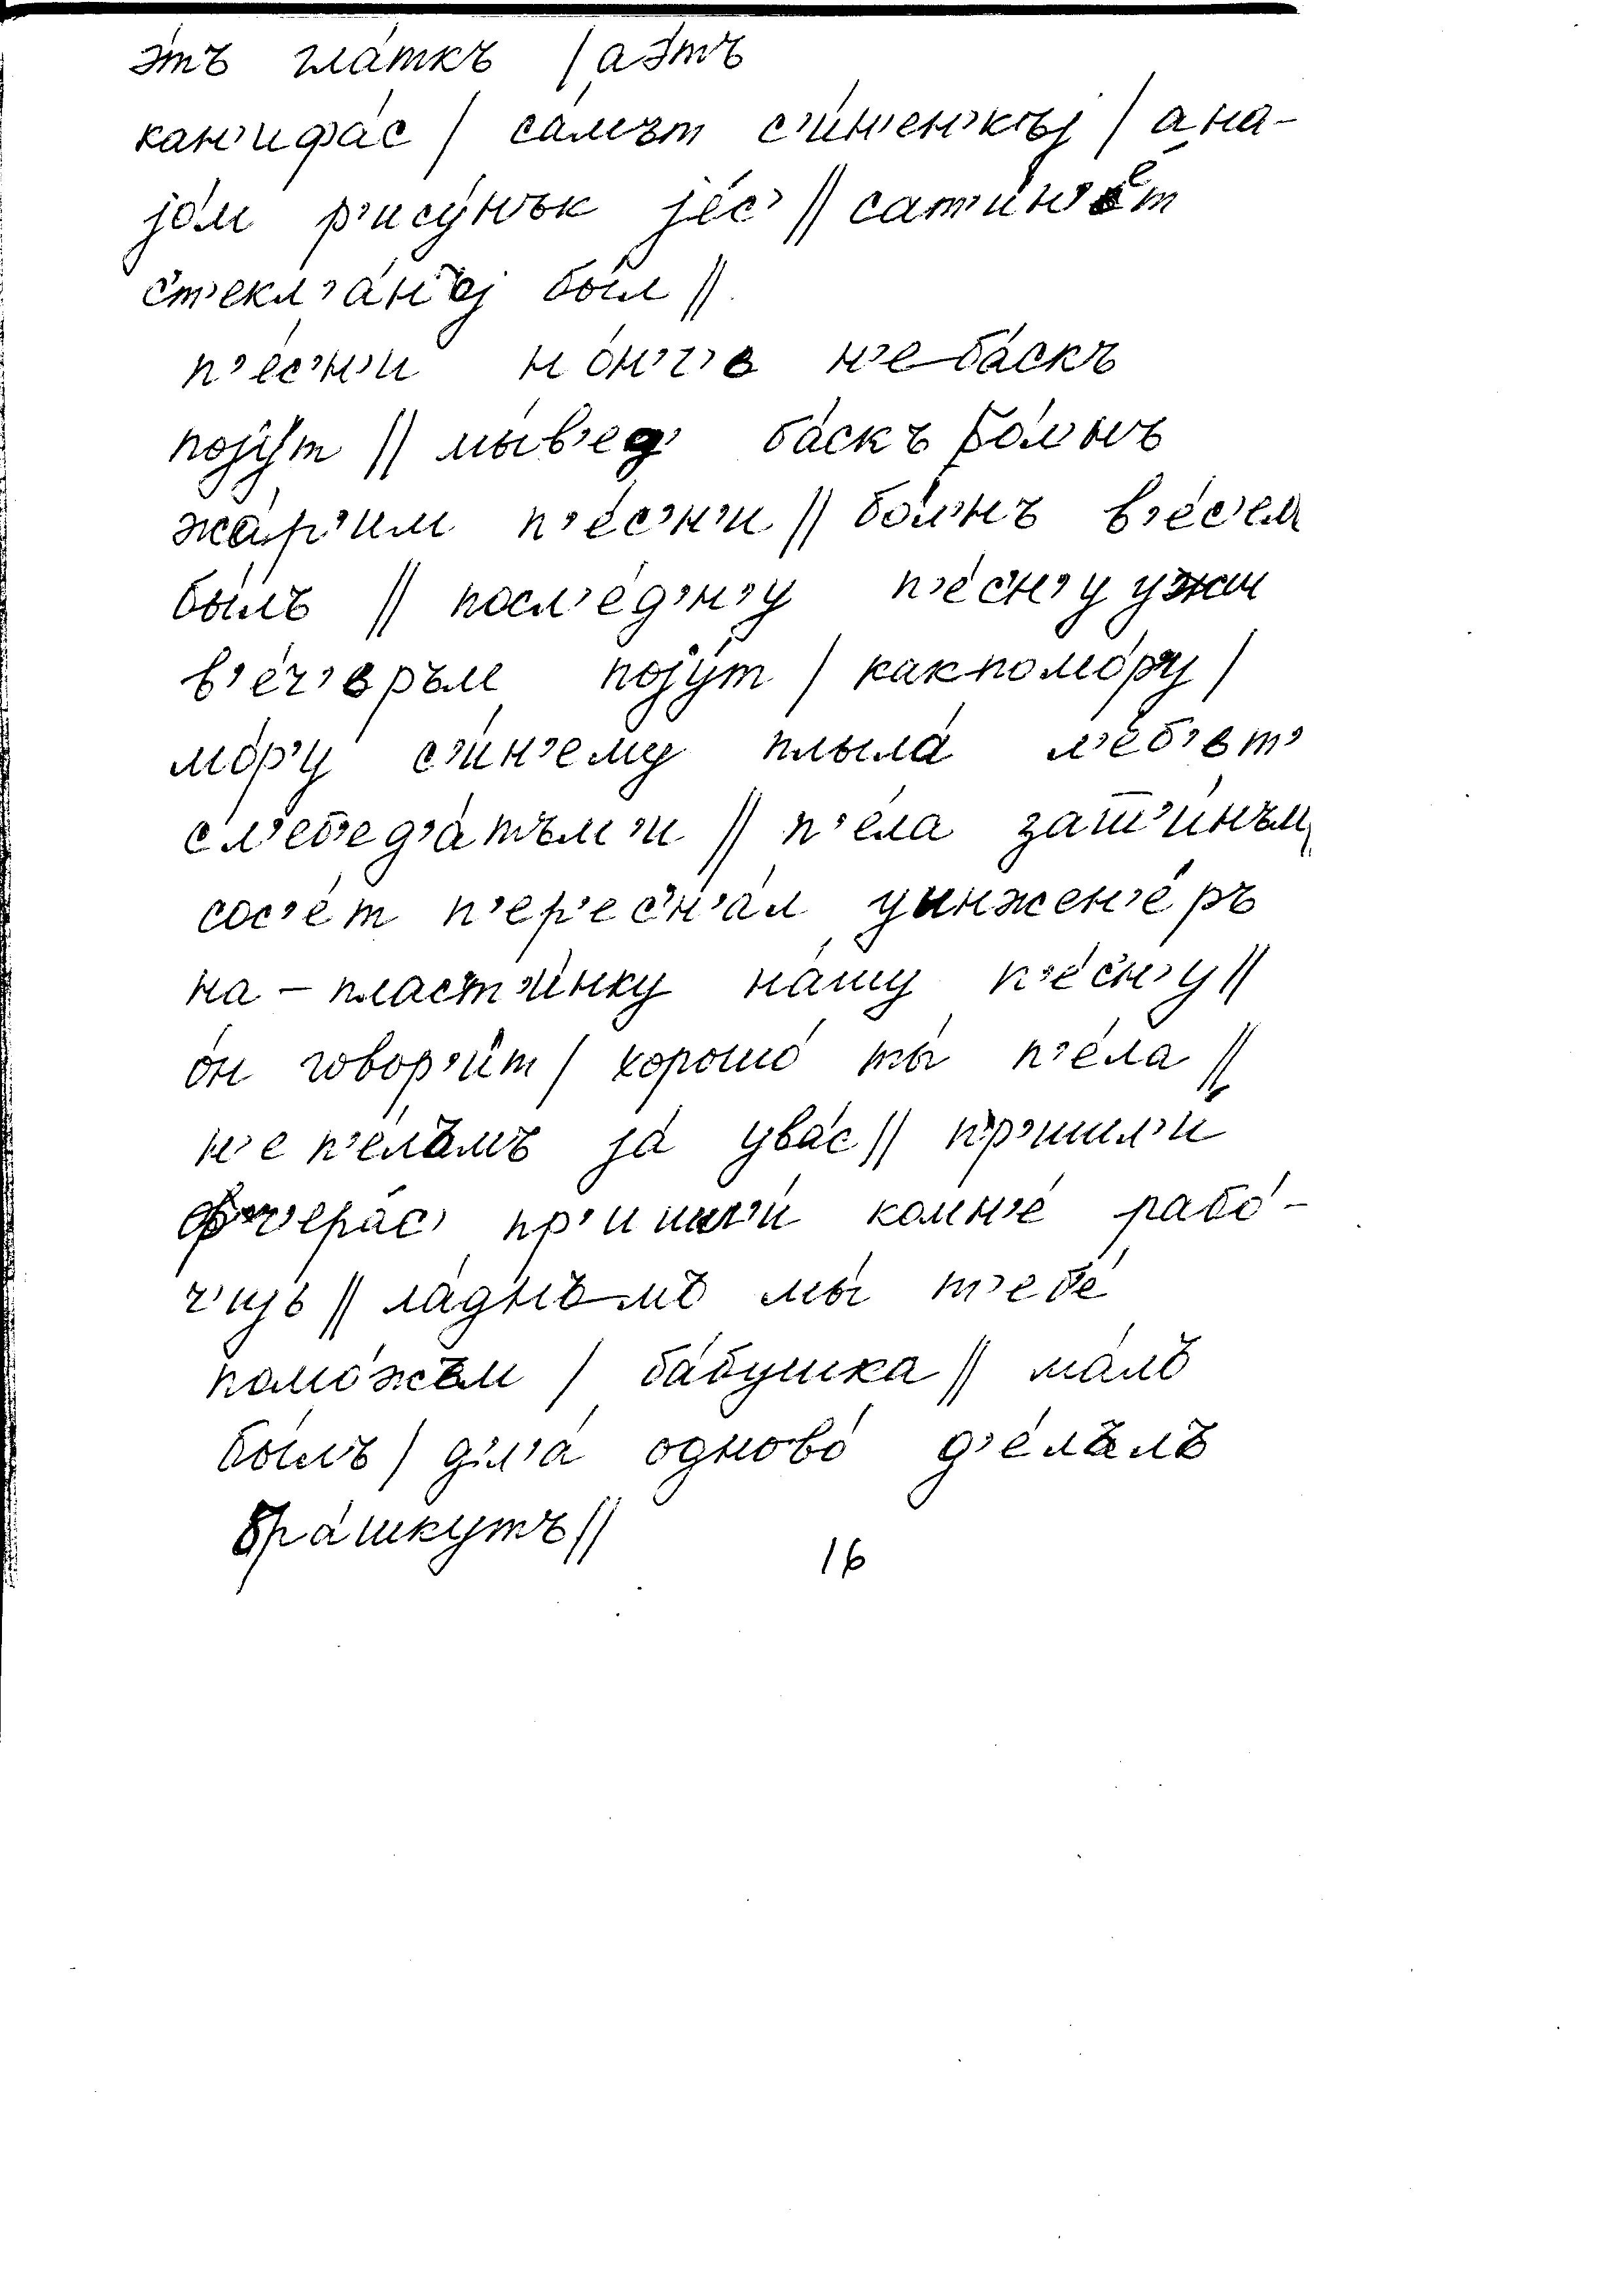 э́тъ гла́ткъ / а э́тъ
кан'ифа́с / са́мът с'и́н'ен'къj / а на-
jо́м р'ису́нък jе́с' // сат'ин'е́т
с'т'екл'а́нъj бы́л //
п'е́с'н'и но́н'г'ь н'е-ба́скъ
поjу́т // мы́ в'ед' ба́скъ бо́л'нъ
жа́р'им п'е́с'н'и // бо́л'нъ в'е́с'ел
бы́лъ // посл'е́дн'у п'е́с'н'у ужы
в'е́ч'ьръм поjу́т / как по мо́р'у /
мо́р'у с'и́н'ему плыла́ л'е́б'ьт'
с л'еб'ед'а́тъм'и // п'е́ла за т'и́нъм,
сос'е́т п'ер'ес'н'а́л у инжен'е́ръ
на-пласт'и́нку на́шу п'е́с'н'у //
о́н говор'и́т / хорошо́ ты́ п'е́ла //
н'е п'е́ла мъ jа́ у ва́с // пр'ишл'и́
ф'ч'ера́с' пр'ишл'и́ ко мн'е́ рабо́-
ч'иjь // ла́днъ-мъ мы́ т'еб'е́
помо́жъм / ба́бушка // ма́лъ
бы́лъ / дл'а́ одново́ д'е́лълъ
бра́шкутъ //
16